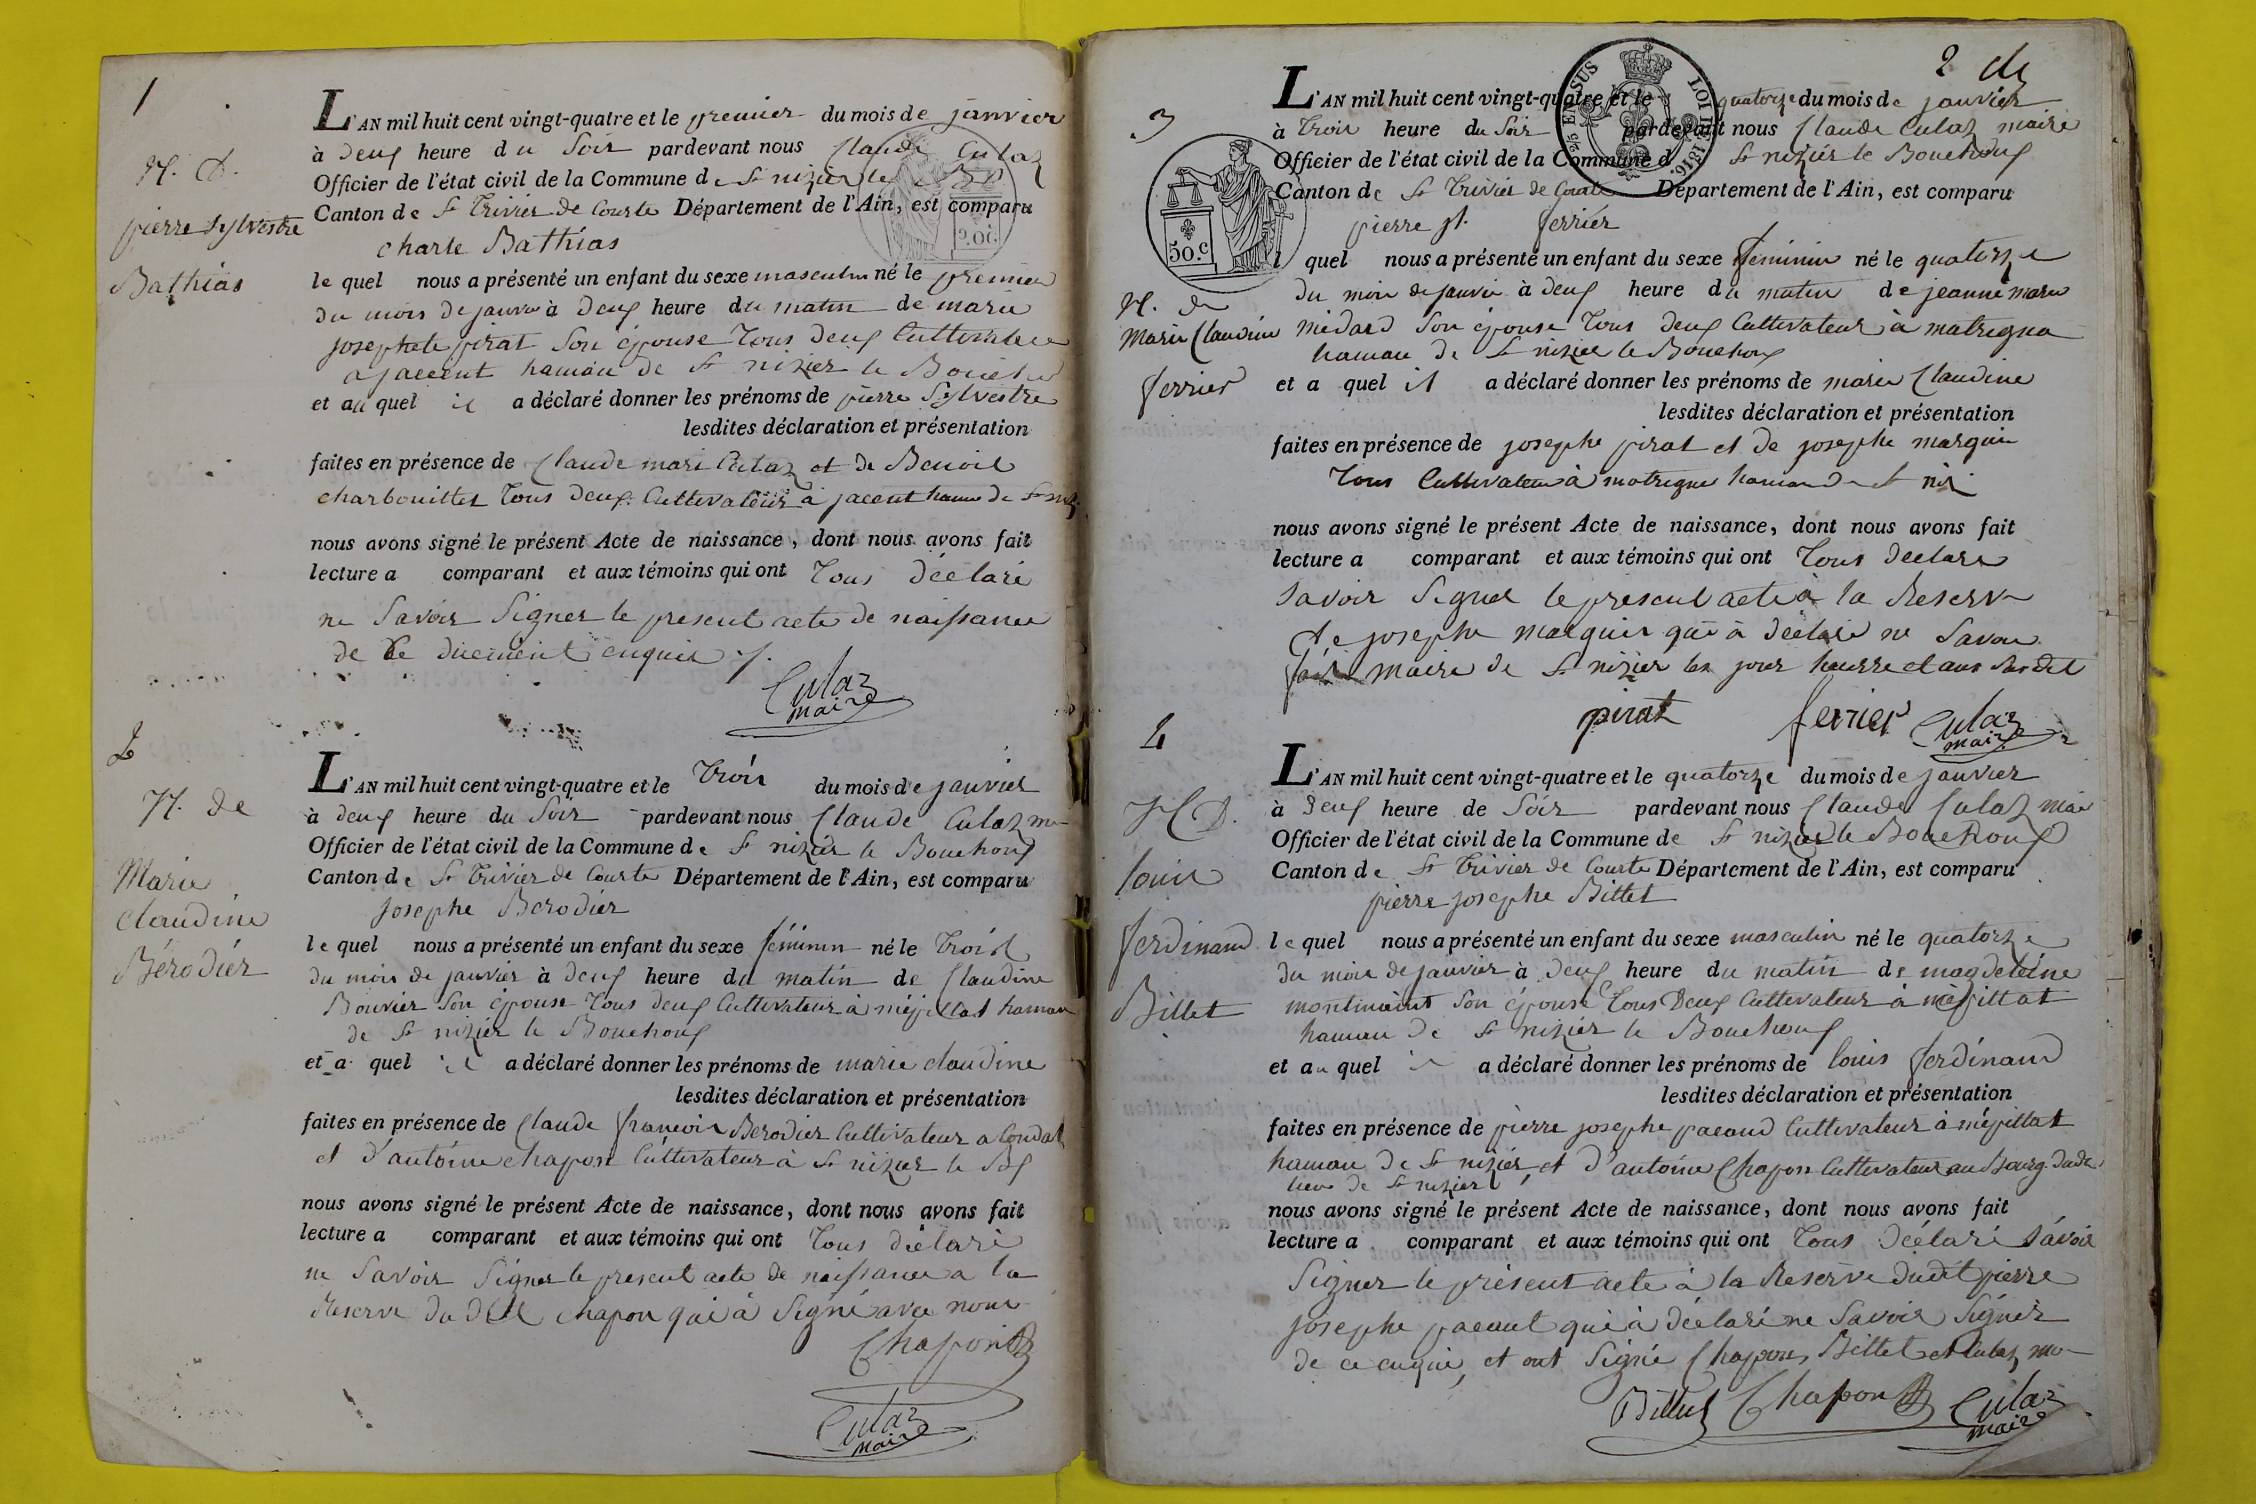 1
N. D.
pierre Sylvestre
Bathias
L'AN mil huit cent vingt-quatre et le premier du mois de janvier
à deux heure du Soir pardevant nous Claude Culaz
Officier de l'état civil de la Commune de St nizier le
Canton de St Trivier de Courte Département de l'Ain, est comparu
charle Bathias
le quel nous a présenté un enfant du sexe masculin né le premier
du mois de janvier à deux heure du matin de marie
josephete pirat Son épouse Tous deux Cultivateur
a jacent hamau de St nizier le Bouchoux
et au quel il a déclaré donner les prénoms de pierre Sylvestre
lesdites déclaration et présentation
faites en présence de Claude mari Culaz et de Benoit
charbouillet Tous deux Cultivateur à jacent hamau de St niz
nous avons signé le présent Acte de naissance, dont nous avons fait
lecture a comparant et aux témoins qui ont Tous déclaré
ne Savoir Signer le present acte de naissance
de Ce duement enquis
Culaz
maire
2
N. de
Marie
claudine
Bérodier
L'AN mil huit cent vingt-quatre et le Trois du mois de janvier
à deux heure du Soir pardevant nous Claude Culaz
Officier de l'état civil de la Commune de St nizier le Bouchoux
Canton de St Trivier de Courte Département de l'Ain, est comparu
josephe Berodier
le quel nous a présenté un enfant du sexe féminin né le Trois
du mois de janvier à deux heure du matin de Claudine
Bouvier Son épouse Tous deux Cultivateur à mépillat hamau
de St nizier le Bouchoux
et a quel il a déclaré donner les prénoms de marie claudine
lesdites déclaration et présentation
faites en présence de Claude francois Berodier Cultivateur a Condal
et d'antoine chapon Cultivateur à St nizier le Bx
nous avons signé le présent Acte de naissance, dont nous avons fait
lecture a comparant et aux témoins qui ont Tous déclaré
ne Savoir Signer le present acte de naissance a la
Reserve du dit chapon qui à Signé avec nous
Chapon
Culaz
maire
2
3
50.c
LOI DE 1816.
N. de
Marie Claudine
ferrier
L'AN mil huit cent vingt-quatre et le quatorze du mois de janvier
à Trois heure du Soir pardevant nous Claude Culaz maire
Officier de l'état civil de la Commune d St nizier le Bouchoux
Canton de St Trivier de Courte Département de l'Ain, est comparu
pierre jh. ferrier
l quel nous a présenté un enfant du sexe féminin né le quatorze
du mois de janvier à deux heure du matin de jeanne marie
médard Son épouse Tous deux Cultivateur à matregna
hamau de St nizier le Bouchoux
et a quel il a déclaré donner les prénoms de marie Claudine
lesdites déclaration et présentation
faites en présence de josephe pirat et de josephe marquis
Tous Cultivateur à matregna hamau de St niz
nous avons signé le présent Acte de naissance, dont nous avons fait
lecture a comparant et aux témoins qui ont Tous déclaré
Savoir Signer le present acte à la Reserve
de josephe marquis qui à déclaré ne Savoir
maire de St nizier les jour heurre et ans Susdit
pirat ferrier Culaz
maire
4
N. D.
louis
ferdinand
Billet
L'AN mil huit cent vingt-quatre et le quatorze du mois de janvier
à deux heure de Soir pardevant nous Claude Culaz maire
Officier de l'état civil de la Commune de St nizier le Bouchoux
Canton de St Trivier de Courte Département de l'Ain, est comparu
pierre josephe Billet
le quel nous a présenté un enfant du sexe masculin né le quatorze
du mois de janvier à deux heure du matin de magdeleine
Son épouse Tous deux Cultivateur à mépillat
hamau de St nizier le Bouchoux
et au quel il a déclaré donner les prénoms de louis ferdinand
lesdites déclaration et présentation
faites en présence de pierre josephe pacaud Cultivateur à mépillat
hamau de St nizier, et d'antoine Chapon Cultivateur au Bourg dudit
lieu de St nizier
nous avons signé le présent Acte de naissance, dont nous avons fait
lecture a comparant et aux témoins qui ont Tous déclaré Savoir
Signer le présent acte à la Reserve dudit pierre
josephe pacaut qui à déclaré ne Savoir Signér
de ce enquis, et ont Signé Chapon, Billet et Culaz
Billet Chapon Culaz
maire